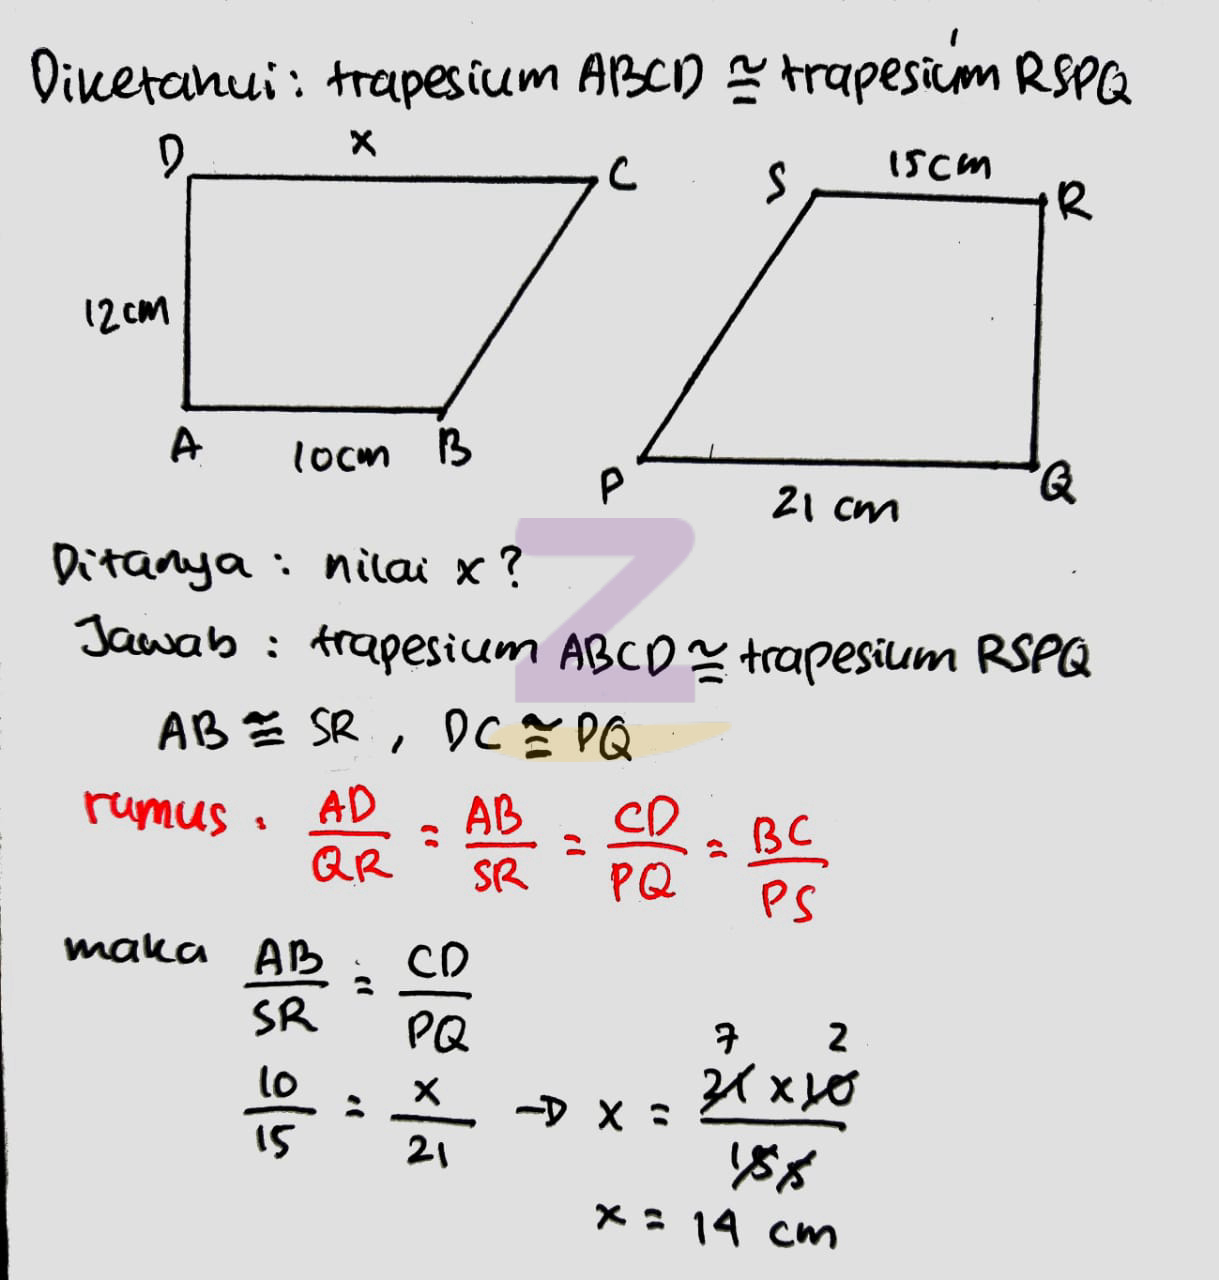 Diketahui : trapesium ABCD ≅ trapesium RSPQ
D x C
S 15cm R
12cm
A 10cm B
P 21 cm Q
Ditanya : nilai x ?
Jawab : trapesium ABCD ≅ trapesium RSPQ
AB ≅ SR , DC ≅ PQ
rumus . AD/QR = AB/SR = CD/PQ = BC/PS
maka AB/SR = CD/PQ
7 2
10/15 = x/21 → x = 21 x 10 / 15 5
x = 14 cm
Z